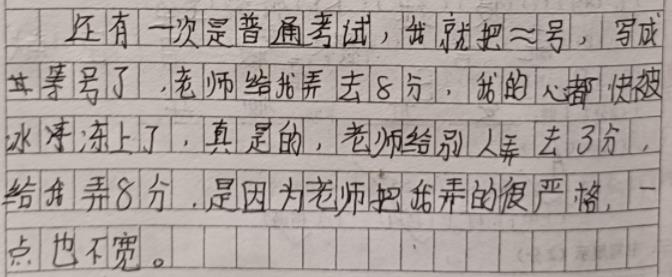 还有一次是普通考试，我就把≈号，写成
其等号了，老师给我弄去8分，我的心都快被
冰冻上了，真是的，老师给别人弄去3分，
给我弄8分，是因为老师把我弄的很严格，一
点也不宽。